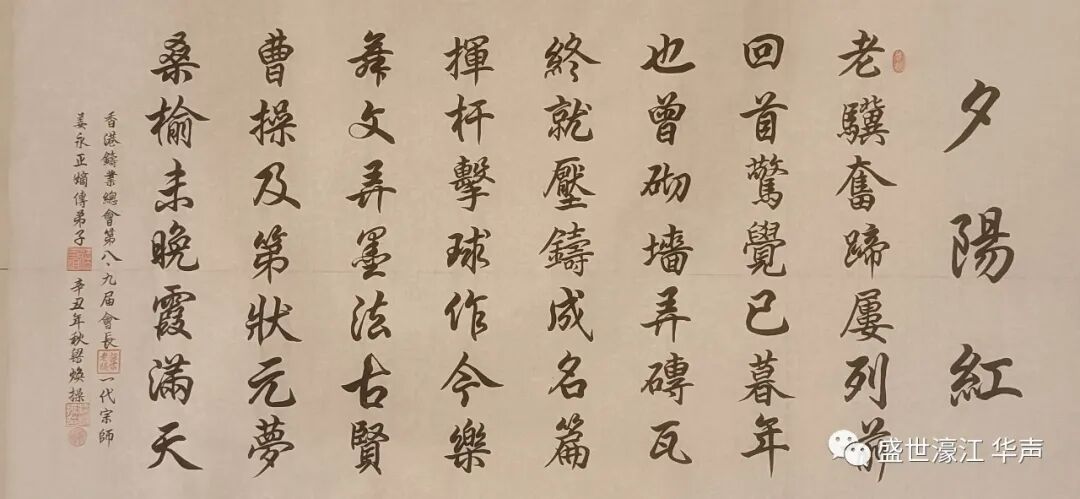 夕陽紅
老驥奮蹄屢列前
回首驚覺已暮年
也曾砌墻弄磚瓦
終就壓鑄成名篇
揮杆擊球作今樂
舞文弄墨法古賢
曹操及第狀元夢
桑榆未晚霞滿天
香港鑄業總會第八、九届會長
一代宗師
姜永正嫡傳弟子
辛丑年秋梁煥操
盛世濠江 华声